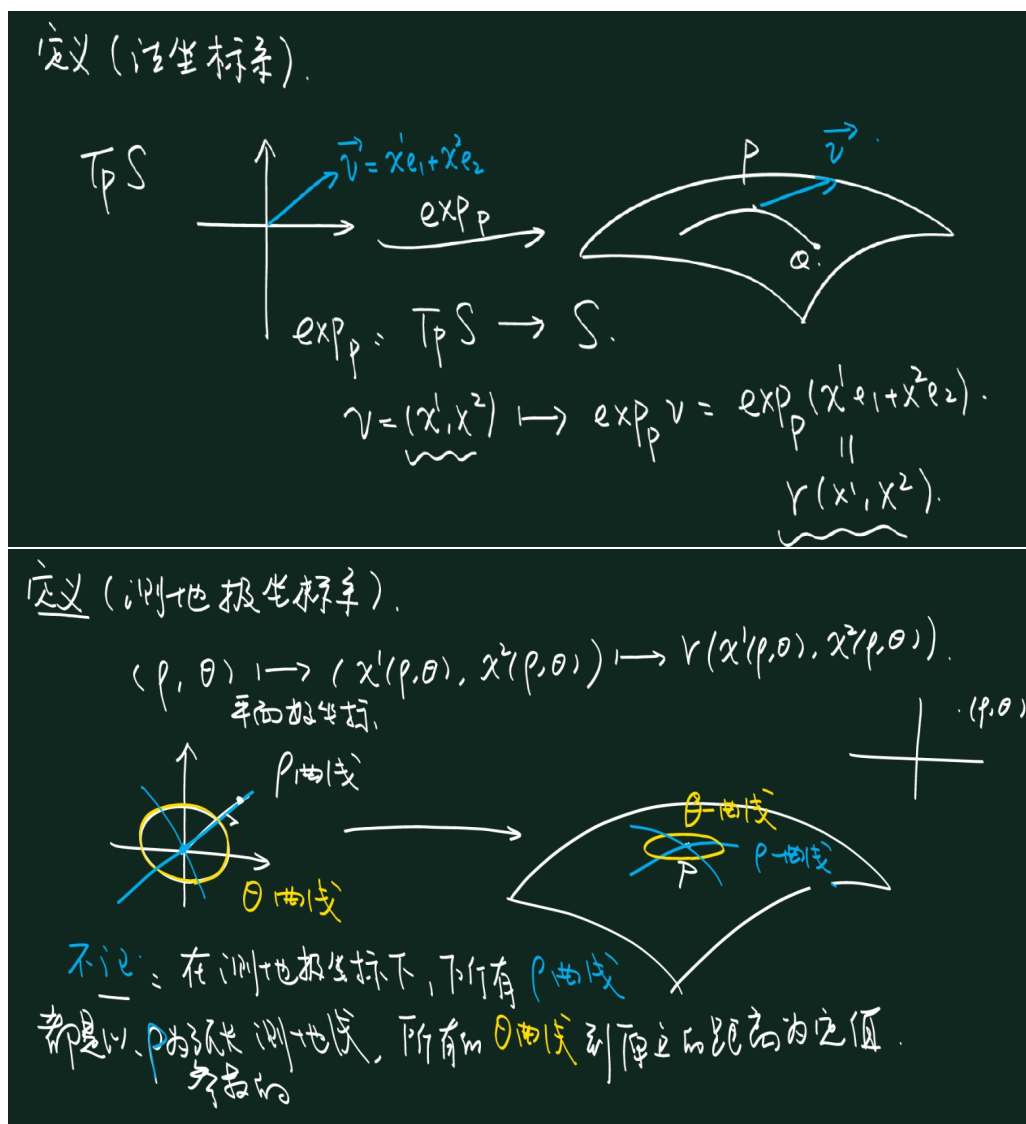 定义(法坐标系).
TpS
v⃗ = x¹e₁+x²e₂
exp_p
P
v⃗
Q
exp_p: TpS → S.
v=(x¹,x²) ↦ exp_p v = exp_p(x¹e₁+x²e₂).
||
r(x¹,x²).
定义(测地极坐标系).
(ρ,θ) ↦ (x¹(ρ,θ), x²(ρ,θ)) ↦ r(x¹(ρ,θ), x²(ρ,θ)).
平面极坐标.
(ρ,θ)
ρ曲线
θ曲线
θ-曲线
ρ-曲线
P
在测地极坐标下,所有ρ曲线
都是以ρ为弧长测地线, 所有的θ曲线到原点的距离为定值.
参数的